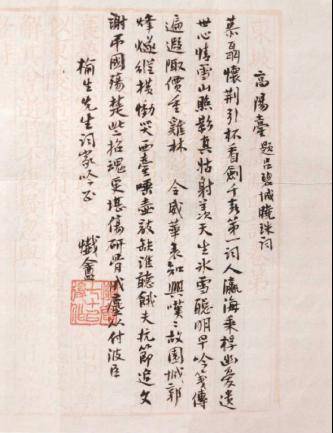 高陽臺 題呂碧城曉珠詞
慕聶懷荊引杯看劍千秋第一詞人瀛海乘桴幽憂遺
世心情雪山照影真姑射羨天生冰雪聰明早吟箋傳
遍遐陬價重雞林 令威華表知興嘆嘆故園城郭
烽燧縱橫慟哭西臺唾壺敲缺誰聽餓夫抗節追文
謝弔國殤楚些招魂更堪傷研骨成塵以付波臣
榆生先生詞家吟正
懺盦